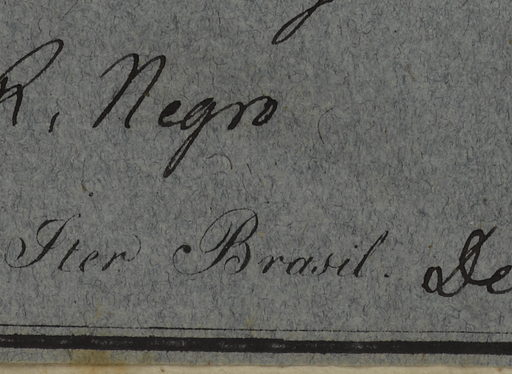 R. Negro
Iter Brasil. De